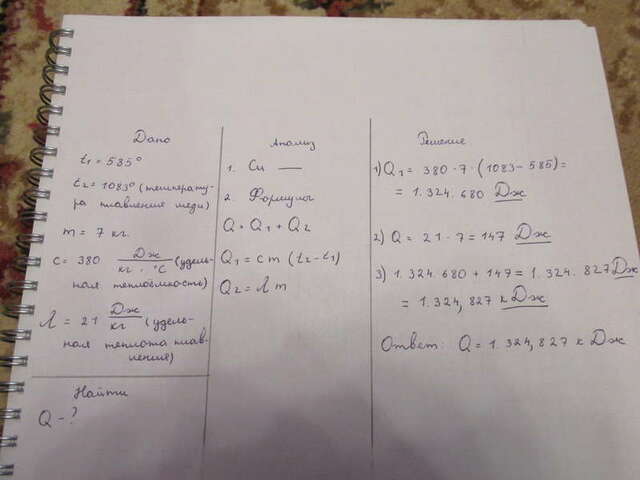 Дано
t₁ = 585°
t₂ = 1083° (температу-
ра плавления меди)
m = 7 кг.
c = 380 Дж/кг · °C (удель-
ная теплоёмкость)
λ = 21 Дж/кг (удель-
ная теплота плав-
ления)
Найти
Q - ?
Анализ
1. Си —
2. Формулы
Q = Q₁ + Q₂
Q₁ = cm (t₂ - t₁)
Q₂ = λ m
Решение
1) Q₁ = 380 · 7 · (1083 - 585) =
= 1.324.680 Дж
2) Q = 21 · 7 = 147 Дж
3) 1.324.680 + 147 = 1.324.827 Дж
= 1.324,827 к Дж
Ответ: Q = 1.324,827 к Дж